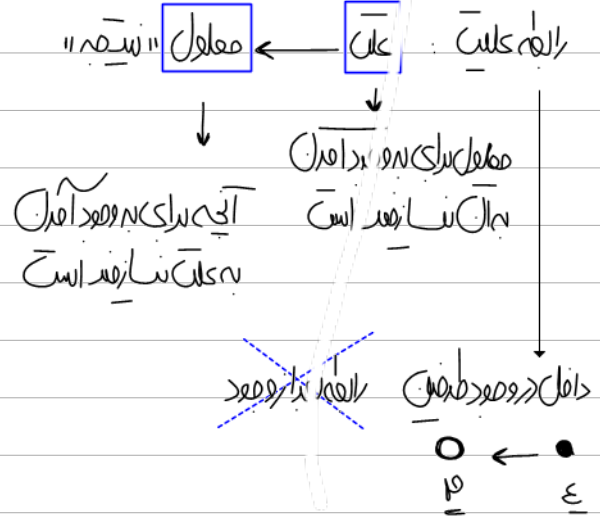 رابطه علیت : علت ← معلول "نتیجه"
معلول برای به وجود آمدن
به آن نیازمند است
آنچه برای به وجود آمدن
به علت نیازمند است
داخل در وجود طرفین
رابطه بعد از وجود
ع ← م